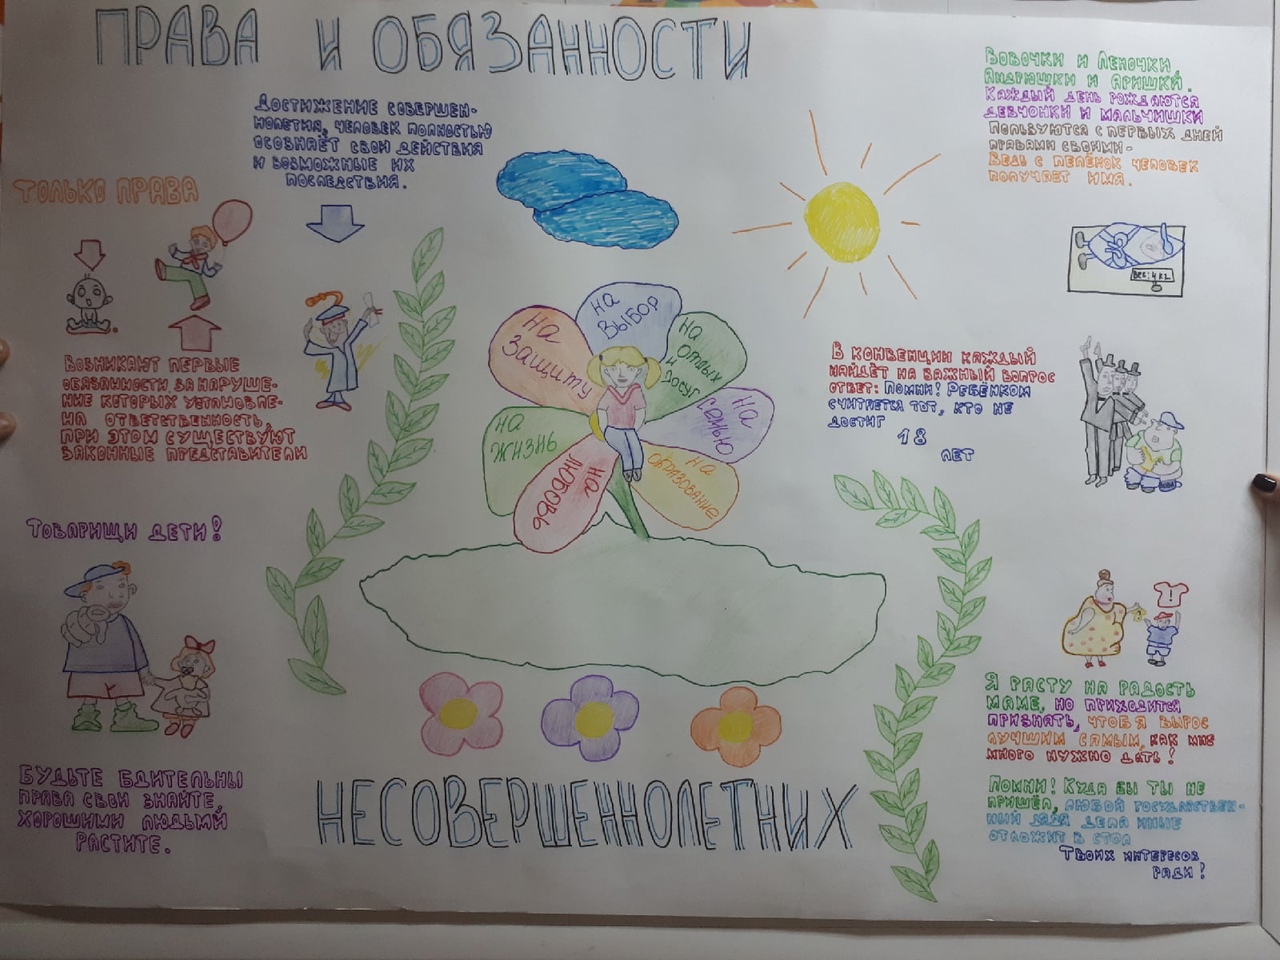 ПРАВА И ОБЯЗАННОСТИ
ДОСТИЖЕНИЕ СОВЕРШЕН-
НОЛЕТИЯ, ЧЕЛОВЕК ПОЛНОСТЬЮ
ОСОЗНАЁТ СВОИ ДЕЙСТВИЯ
И ВОЗМОЖНЫЕ ИХ
ПОСЛЕДСТВИЯ.
ТОЛЬКО ПРАВА
ВОЗНИКАЮТ ПЕРВЫЕ
ОБЯЗАННОСТИ ЗА НАРУШЕ-
НИЕ КОТОРЫХ УСТАНОВЛЕ-
НА ОТВЕТСТВЕННОСТЬ,
ПРИ ЭТОМ СУЩЕСТВУЮТ
ЗАКОННЫЕ ПРЕДСТАВИТЕЛИ
ТОВАРИЩИ ДЕТИ!
БУДЬТЕ БДИТЕЛЬНЫ
ПРАВА СВОИ ЗНАЙТЕ,
ХОРОШИМИ ЛЮДЬМИ
РАСТИТЕ.
на
защиту
на
выбор
на
отдых
и
досуг
на
семью
на
образование
на
любовь
на
жизнь
ВОВОЧКИ И ЛЕНОЧКИ,
АНДРЮШКИ И АРИШКИ.
КАЖДЫЙ ДЕНЬ РОЖДАЮТСЯ
ДЕВЧОНКИ И МАЛЬЧИШКИ
ПОЛЬЗУЮТСЯ С ПЕРВЫХ ДНЕЙ
ПРАВАМИ СВОИМИ-
ВЕДЬ С ПЕЛЁНОК ЧЕЛОВЕК
ПОЛУЧАЕТ ИМЯ.
В КОНВЕНЦИИ КАЖДЫЙ
НАЙДЁТ НА ВАЖНЫЙ ВОПРОС
ОТВЕТ: ПОМНИ! РЕБЁНКОМ
СЧИТАЕТСЯ ТОТ, КТО НЕ
ДОСТИГ
18
ЛЕТ
Я РАСТУ НА РАДОСТЬ
МАМЕ, НО ПРИХОДИТСЯ
ПРИЗНАТЬ, ЧТОБ Я ВЫРОС
ЛУЧШИМ САМЫМ, КАК МНЕ
МНОГО НУЖНО ДАТЬ!
ПОМНИ! КУДА БЫ ТЫ НЕ
ПРИШЁЛ, ЛЮБОЙ ГОСУДАРСТВЕН-
НЫЙ ДЯДЯ ДЕЛА ИНЫЕ
ОТЛОЖИТ В СТОЛ
ТВОИХ ИНТЕРЕСОВ
РАДИ!
НЕСОВЕРШЕННОЛЕТНИХ